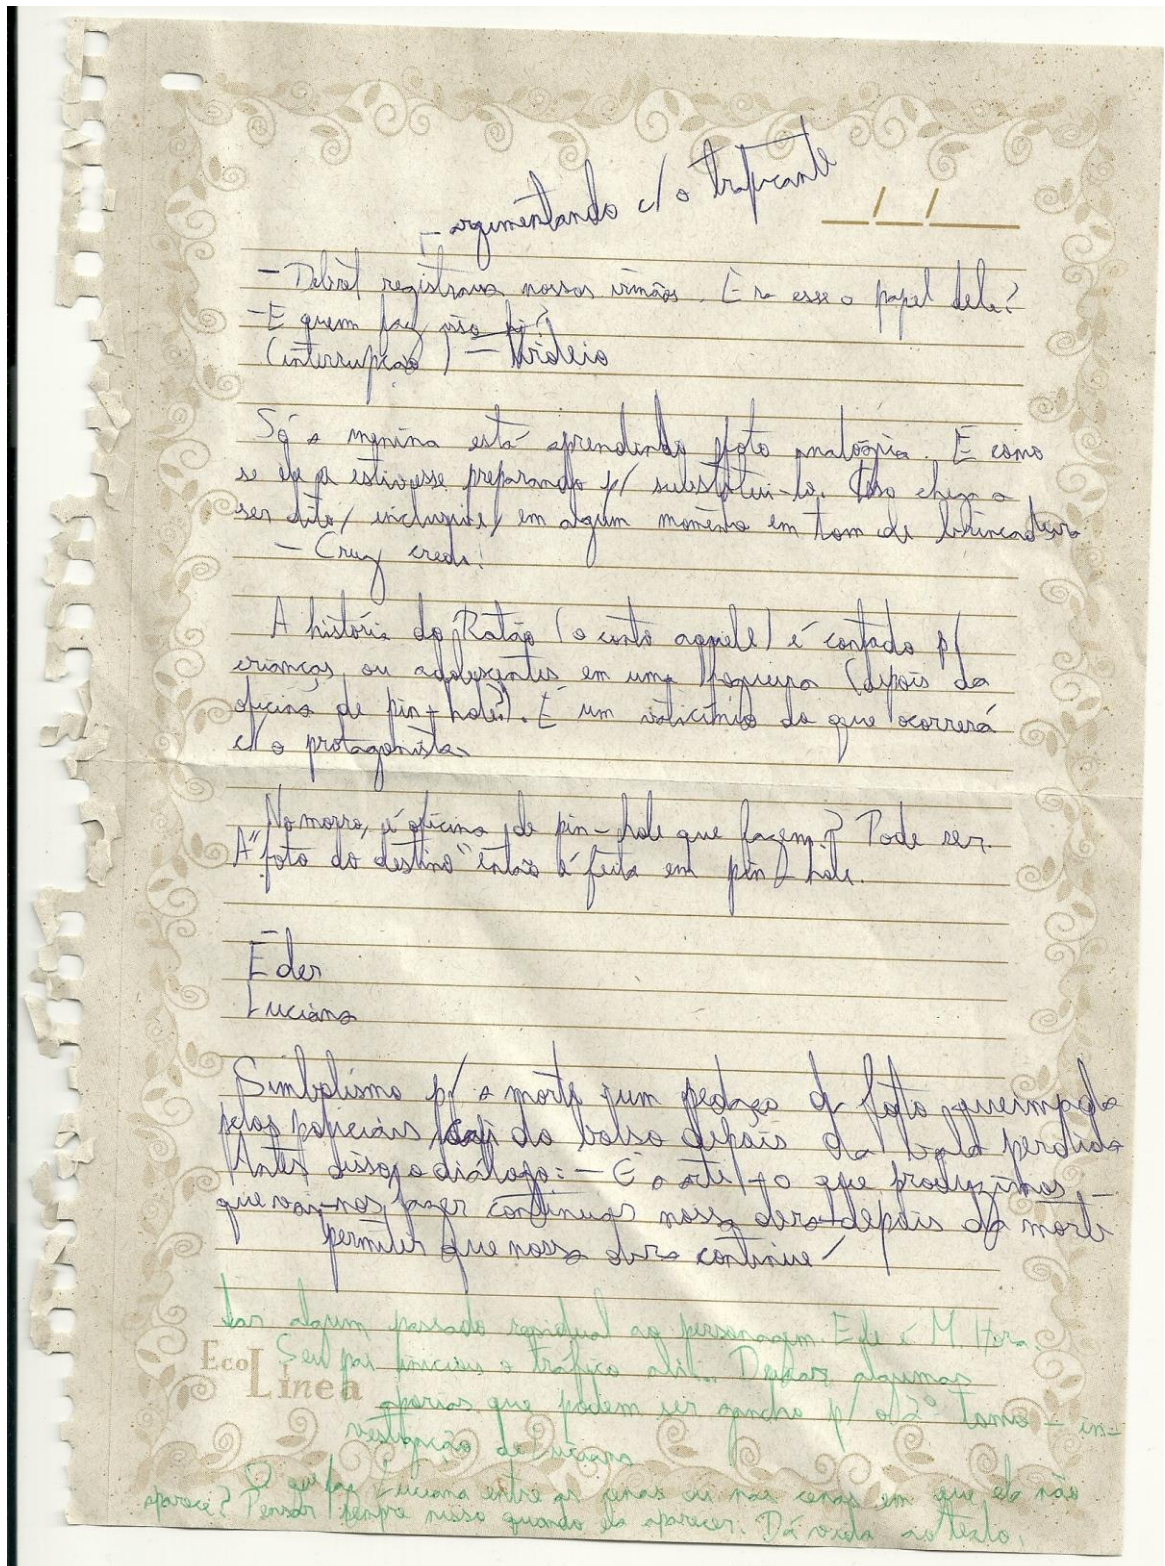 argumentando c/ o traficante
- Debret registrava nossos irmãos. Era esse o papel dele?
- E quem faz isso hj?
(interrupção) -
Só a menina está aprendendo foto analógica. É como
se ele já estivesse preparando p/ substituí-lo. Isso chega a
ser dito/ inclusive/ em algum momento em tom de brincadeira
- Cruz credo!
A história do Ratão (o conto aquele) é contado p/
crianças ou adolescentes em uma fogueira (depois da
oficina de pin-hole?). É um vaticínio do que ocorrerá
c/ o protagonista
No morro, é oficina de pin-hole que fazem? Pode ser.
A "foto do destino" então é feita em pin-hole.
Éder
Luciana
Simbolismo p/ a morte: um pedaço d foto queimada
pelos policiais cai do bolso depois da bala perdida
Antes disso o diálogo: - É a arte/ o que produzimos,
que vai nos fazer continuar nossa obra depois da morte
permitir que nossa obra continue
dar algum passado ao personagem. Ele é M. Hora.
Seu pai iniciou o tráfico ali. Deixar algumas
aporias que podem ser gancho p/ o 2º tomo - in=
vestigação de Luciana
O que faz Luciana entre as cenas ou nas cenas em que ela não
aparece? Pensar sempre nisso quando ela aparecer. Dá vida ao texto.
Eco
Línea